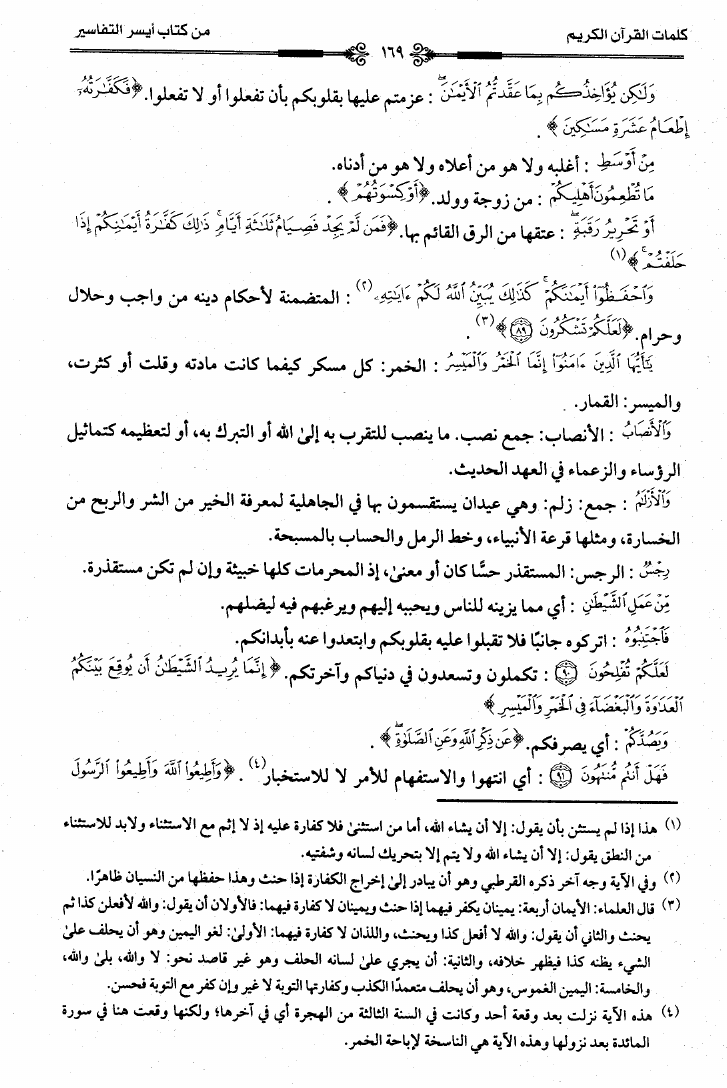 كلمات القرآن الكريم
١٦٩
من كتاب أيسر التفاسير
وَلَٰكِن يُؤَاخِذُكُم بِمَا عَقَّدتُّمُ ٱلْأَيْمَٰنَ ۖ : عزمتم عليها بقلوبكم بأن تفعلوا أو لا تفعلوا. ﴿فَكَفَّٰرَتُهُۥٓ
إِطْعَامُ عَشَرَةِ مَسَٰكِينَ﴾ .
مِنْ أَوْسَطِ : أغلبه ولا هو من أعلاه ولا هو من أدناه.
مَا تُطْعِمُونَ أَهْلِيكُمْ : من زوجة وولد. ﴿أَوْ كِسْوَتُهُمْ﴾ .
أَوْ تَحْرِيرُ رَقَبَةٍ ۖ : عتقها من الرق القائم بها. ﴿فَمَن لَّمْ يَجِدْ فَصِيَامُ ثَلَٰثَةِ أَيَّامٍ ۚ ذَٰلِكَ كَفَّٰرَةُ أَيْمَٰنِكُمْ إِذَا
حَلَفْتُمْ ۚ﴾(١)
وَٱحْفَظُوٓا۟ أَيْمَٰنَكُمْ ۚ كَذَٰلِكَ يُبَيِّنُ ٱللَّهُ لَكُمْ ءَايَٰتِهِۦ(٢) : المتضمنة لأحكام دينه من واجب وحلال
وحرام. ﴿لَعَلَّكُمْ تَشْكُرُونَ ٨٩﴾(٣) .
يَٰٓأَيُّهَا ٱلَّذِينَ ءَامَنُوٓا۟ إِنَّمَا ٱلْخَمْرُ وَٱلْمَيْسِرُ : الخمر: كل مسكر كيفما كانت مادته وقلت أو كثرت،
والميسر: القمار.
وَٱلْأَنصَابُ : الأنصاب: جمع نصب. ما ينصب للتقرب به إلىٰ الله أو التبرك به، أو لتعظيمه كتماثيل
الرؤساء والزعماء في العهد الحديث.
وَٱلْأَزْلَٰمُ : جمع: زلم: وهي عيدان يستقسمون بها في الجاهلية لمعرفة الخير من الشر والربح من
الخسارة، ومثلها قرعة الأنبياء، وخط الرمل والحساب بالمسبحة.
رِجْسٌ : الرجس: المستقذر حسًّا كان أو معنىٰ، إذ المحرمات كلها خبيثة وإن لم تكن مستقذرة.
مِّنْ عَمَلِ ٱلشَّيْطَٰنِ : أي مما يزينه للناس ويحببه إليهم ويرغبهم فيه ليضلهم.
فَٱجْتَنِبُوهُ : اتركوه جانبًا فلا تقبلوا عليه بقلوبكم وابتعدوا عنه بأبدانكم.
لَعَلَّكُمْ تُفْلِحُونَ ٩٠ : تكملون وتسعدون في دنياكم وآخرتكم. ﴿إِنَّمَا يُرِيدُ ٱلشَّيْطَٰنُ أَن يُوقِعَ بَيْنَكُمُ
ٱلْعَدَٰوَةَ وَٱلْبَغْضَآءَ فِى ٱلْخَمْرِ وَٱلْمَيْسِرِ﴾
وَيَصُدَّكُمْ : أي يصرفكم. ﴿عَن ذِكْرِ ٱللَّهِ وَعَنِ ٱلصَّلَوٰةِ ۖ﴾ .
فَهَلْ أَنتُم مُّنتَهُونَ ٩١ : أي انتهوا والاستفهام للأمر لا للاستخبار(٤) . ﴿وَأَطِيعُوا۟ ٱللَّهَ وَأَطِيعُوا۟ ٱلرَّسُولَ
(١) هذا إذا لم يستثن بأن يقول: إلا أن يشاء الله، أما من استثنىٰ فلا كفارة عليه إذ لا إثم مع الاستثناء ولابد للاستثناء
من النطق يقول: إلا أن يشاء الله ولا يتم إلا بتحريك لسانه وشفتيه.
(٢) وفي الآية وجه آخر ذكره القرطبي وهو أن يبادر إلىٰ إخراج الكفارة إذا حنث وهذا حفظها من النسيان ظاهرًا.
(٣) قال العلماء: الأيمان أربعة: يمينان يكفر فيهما إذا حنث ويمينان لا كفارة فيهما: فالأولان أن يقول: والله لأفعلن كذا ثم
يحنث والثاني أن يقول: والله لا أفعل كذا ويحنث، واللذان لا كفارة فيهما: الأولىٰ: لغو اليمين وهو أن يحلف علىٰ
الشيء يظنه كذا فيظهر خلافه، والثانية: أن يجري علىٰ لسانه الحلف وهو غير قاصد نحو: لا والله، بلىٰ والله،
والخامسة: اليمين الغموس، وهو أن يحلف متعمدًا الكذب وكفارتها التوبة لا غير وإن كفر مع التوبة فحسن.
(٤) هذه الآية نزلت بعد وقعة أحد وكانت في السنة الثالثة من الهجرة أي في آخرها؛ ولكنها وقعت هنا في سورة
المائدة بعد نزولها وهذه الآية هي الناسخة لإباحة الخمر.